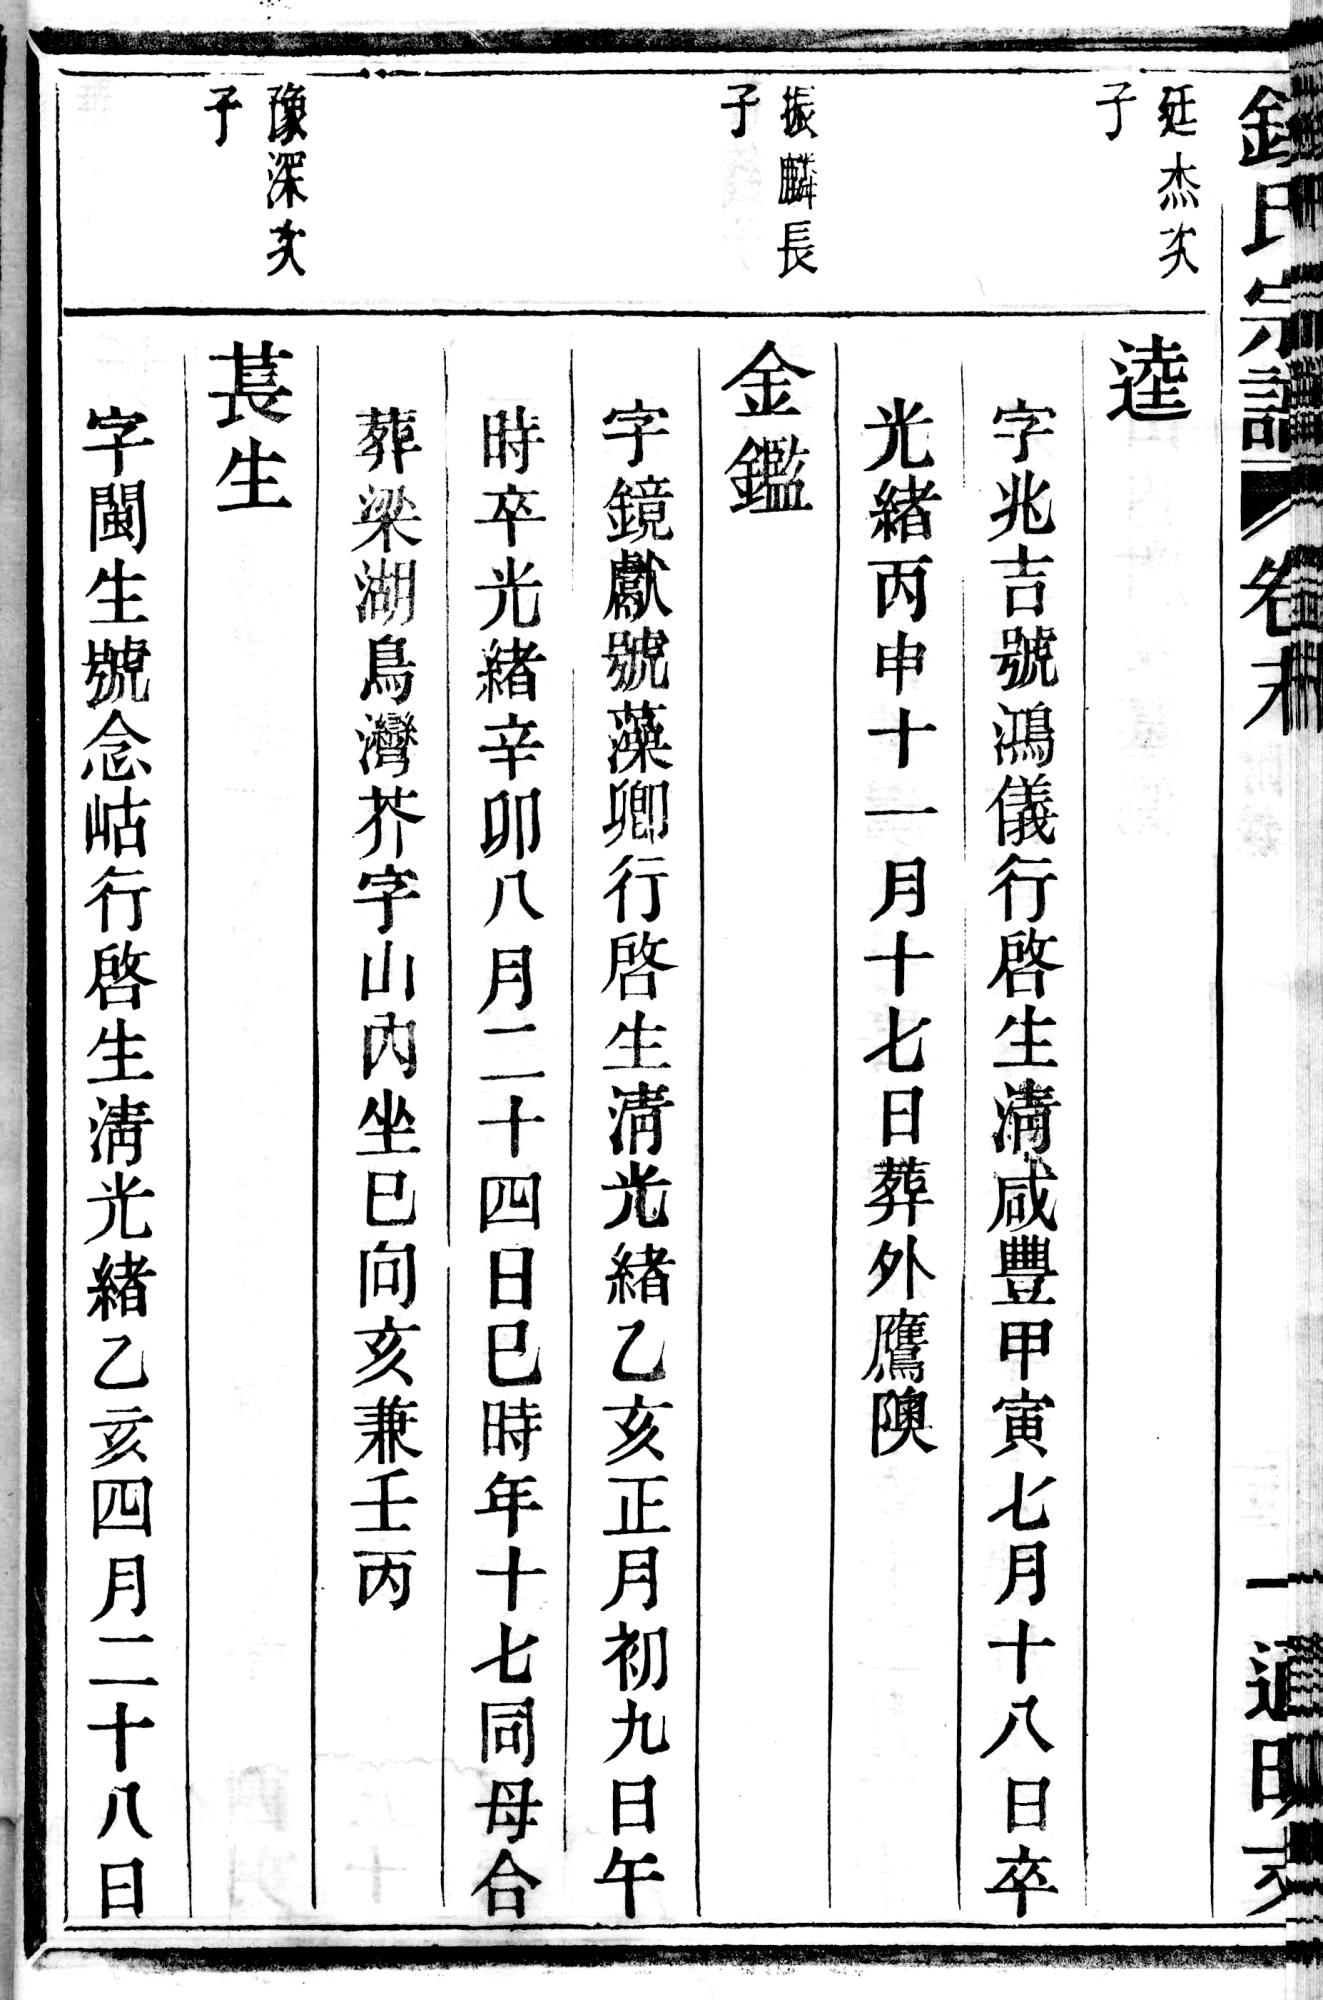 氏宗譜 卷末 一
廷杰次
子
逵
字兆吉號鴻儀行啓生清咸豐甲寅七月十八日卒
光緒丙申十一月十七日葬外鷹隩
振麟長
子
金鑑
字鏡獻號藻卿行啓生淸光緒乙亥正月初九日午
時卒光緒辛卯八月二十四日巳時年十七同母合
葬梁湖鳥灣芥字山內坐巳向亥兼壬丙
豫深次
子
萇生
字閩生號念岵行啓生淸光緒乙亥四月二十八日